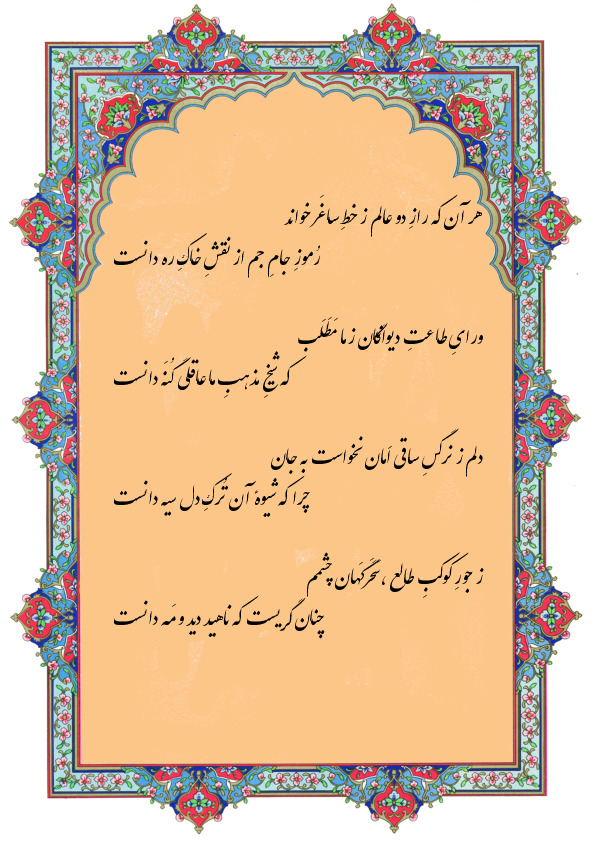 هر آن که رازِ دو عالم ز خطِ ساغَر خواند
رُموزِ جامِ جم از نقشِ خاکِ ره دانست
ورایِ طاعتِ دیوانگان ز ما مَطَلَب
که شیخِ مذهبِ ما عاقلی گُنَه دانست
دلم ز نرگسِ ساقی اَمان نخواست به جان
چرا که شیوهٔ آن تُرکِ دل سیه دانست
ز جورِ کوکبِ طالع ، سَحَرگَهان چشمم
چنان گریست که ناهید دید و مَه دانست